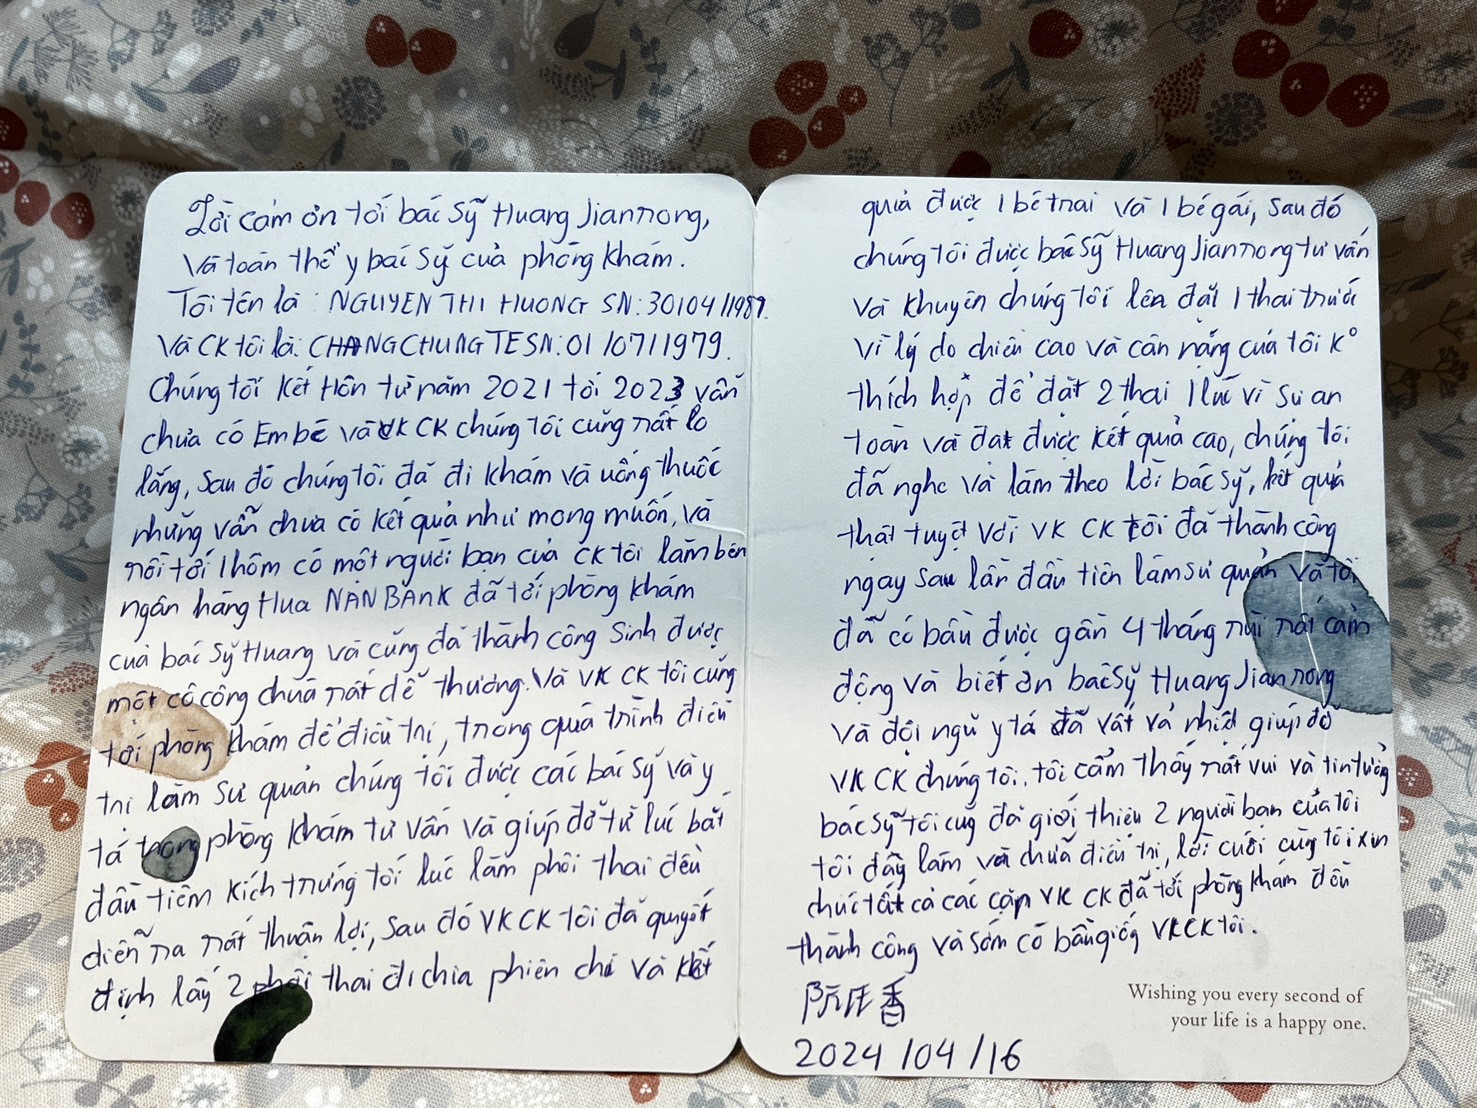 Lời cảm ơn tới bác sỹ Huang Jianrong,
Và toàn thể y bác sỹ của phòng khám.
Tôi tên là : NGUYEN THI HUONG SN: 30/04/1987.
Và CK tôi là: CHANG CHUNG TE SN: 01/07/1979.
Chúng tôi kết Hôn từ năm 2021 tới 2023 vẫn
chưa có Em bé và VK CK chúng tôi cũng rất lo
lắng, sau đó chúng tôi đã đi khám và uống thuốc
nhưng vẫn chưa có kết quả như mong muốn, và
rồi tới 1 hôm có một người bạn của CK tôi làm bên
ngân hàng Hua NAN BANK đã tới phòng khám
của bác sỹ Huang và cũng đã thành công sinh được
một cô công chúa rất dễ thương. Và VK CK tôi cũng
tới phòng khám để điều trị, trong quá trình điều
trị làm sư quản chúng tôi được các bác sỹ và y
tá trong phòng khám tư vấn và giúp đỡ từ lúc bắt
đầu tiêm kích trứng tới lúc làm phôi thai đều
diễn ra rất thuận lợi, sau đó VK CK tôi đã quyết
định lấy 2 phôi thai đi chia phiên chi và kết
quả được 1 bé trai và 1 bé gái, sau đó
chúng tôi được bác sỹ Huang Jianrong tư vấn
và khuyên chúng tôi lên đặt 1 thai trước
vì lý do chiều cao và cân nặng của tôi K°
thích hợp để đặt 2 thai 1 lúc vì sự an
toàn và đạt được kết quả cao, chúng tôi
đã nghe và làm theo lời bác sỹ, kết quả
thật tuyệt vời VK CK tôi đã thành công
ngay sau lần đầu tiên làm sư quản và tôi
đã có bầu được gần 4 tháng rùi rất cảm
động và biết ơn bác sỹ Huang Jianrong
và đội ngũ y tá đã vất vả nhiệt giúp đỡ
VK CK chúng tôi. tôi cảm thấy rất vui và tin tưởng
bác sỹ tôi cũg đã giới thiệu 2 người bạn của tôi
tới đây làm và chữa điều trị, lời cuối cùng tôi xin
chúc tất cả các cặp VK CK đã tới phòng khám đều
thành công và sớm có bầu giống VK CK tôi.
阮氏香
2024/04/16
Wishing you every second of
your life is a happy one.